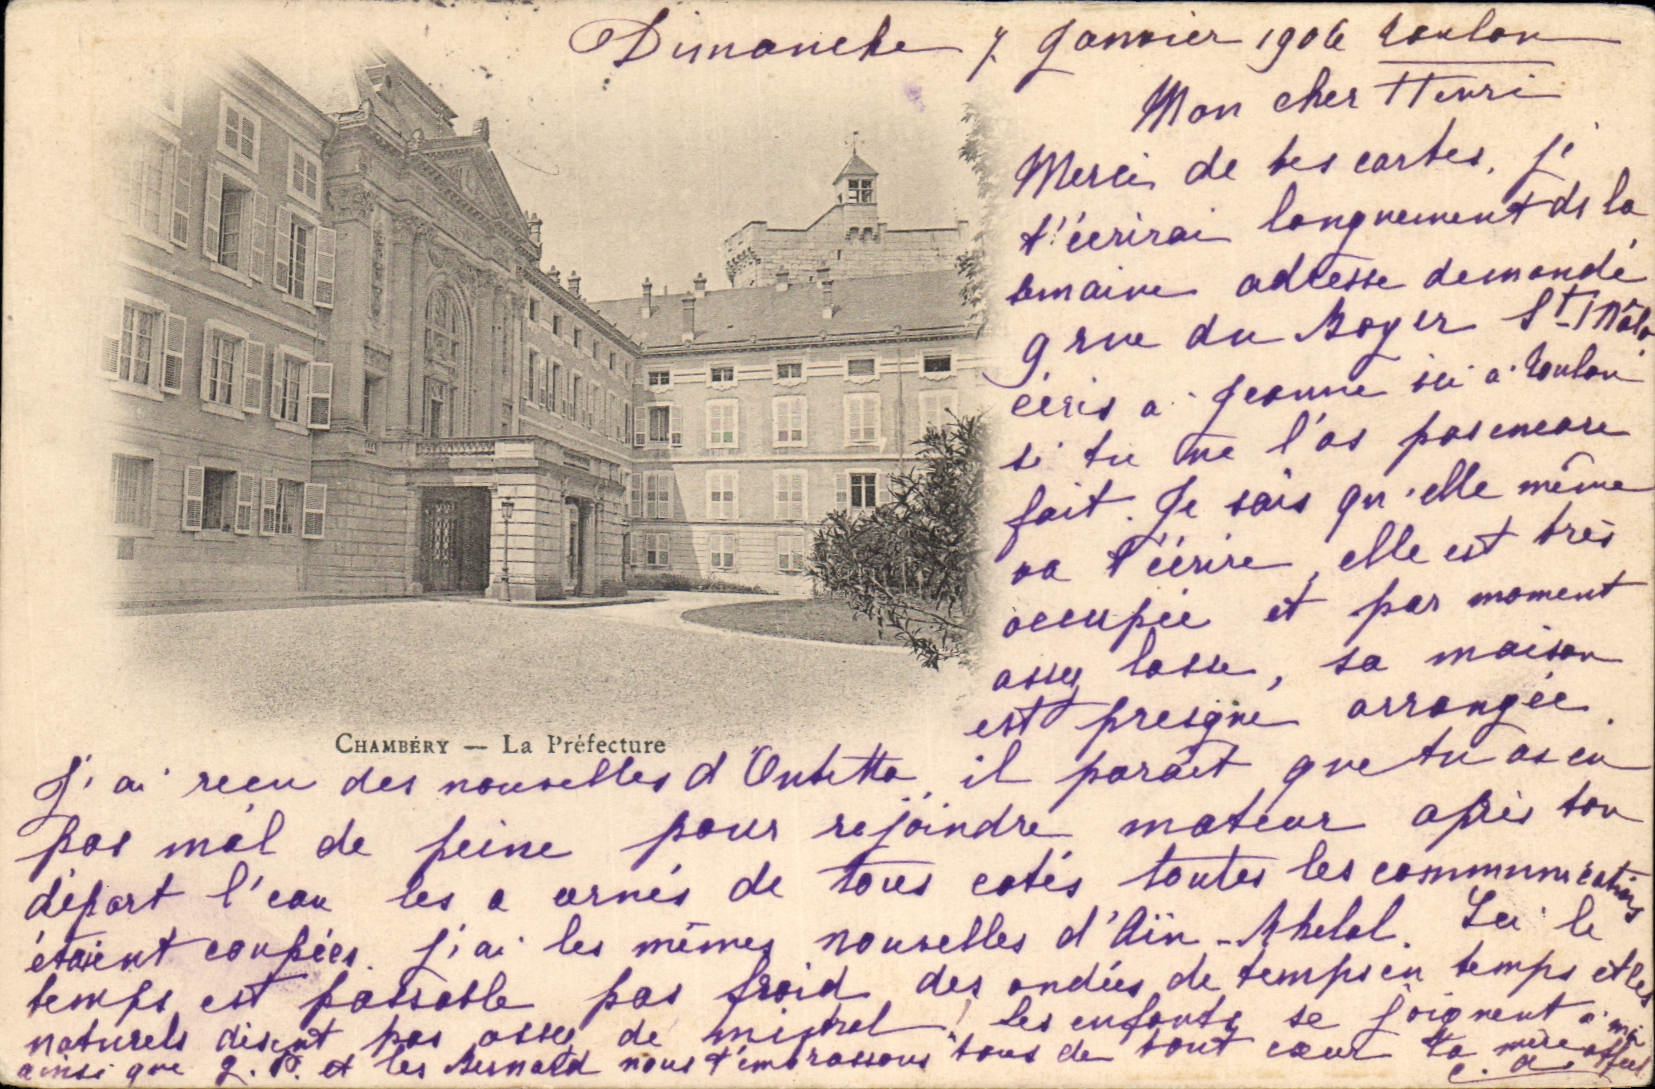 Dimanche 7 Janvier 1906 Toulon
Mon cher Henri
Merci de tes cartes. j'
t'écrirai longuement ds la
smaine adresse demandé
9 rue du Boyer St-Mâlo
écris a Jeanne ici a Toulon
si tu ne l'as pas encore
fait. Je sais qu'elle même
va t'écrire, elle est très
occupée et par moment
assez lasse, sa maison
est presque arrangée.
CHAMBÉRY — La Préfecture
J'ai recu des nouvelles d' il parait que tu as eu
pas mal de peine pour rejoindre mateur après ton
départ l'eau les a cernés de tous cotés toutes les communications
étaient coupées. j'ai les mêmes nouvelles d'Aïn-Rhelal. Ici le
temps est passable pas froid des ondées de temps en temps et les
naturels disent pas assez de mistral! les enfants se joignent a moi
ainsi que J. P. et les Bernard nous t'embrassons tous de tout coeur Ta mère aff
C. A.